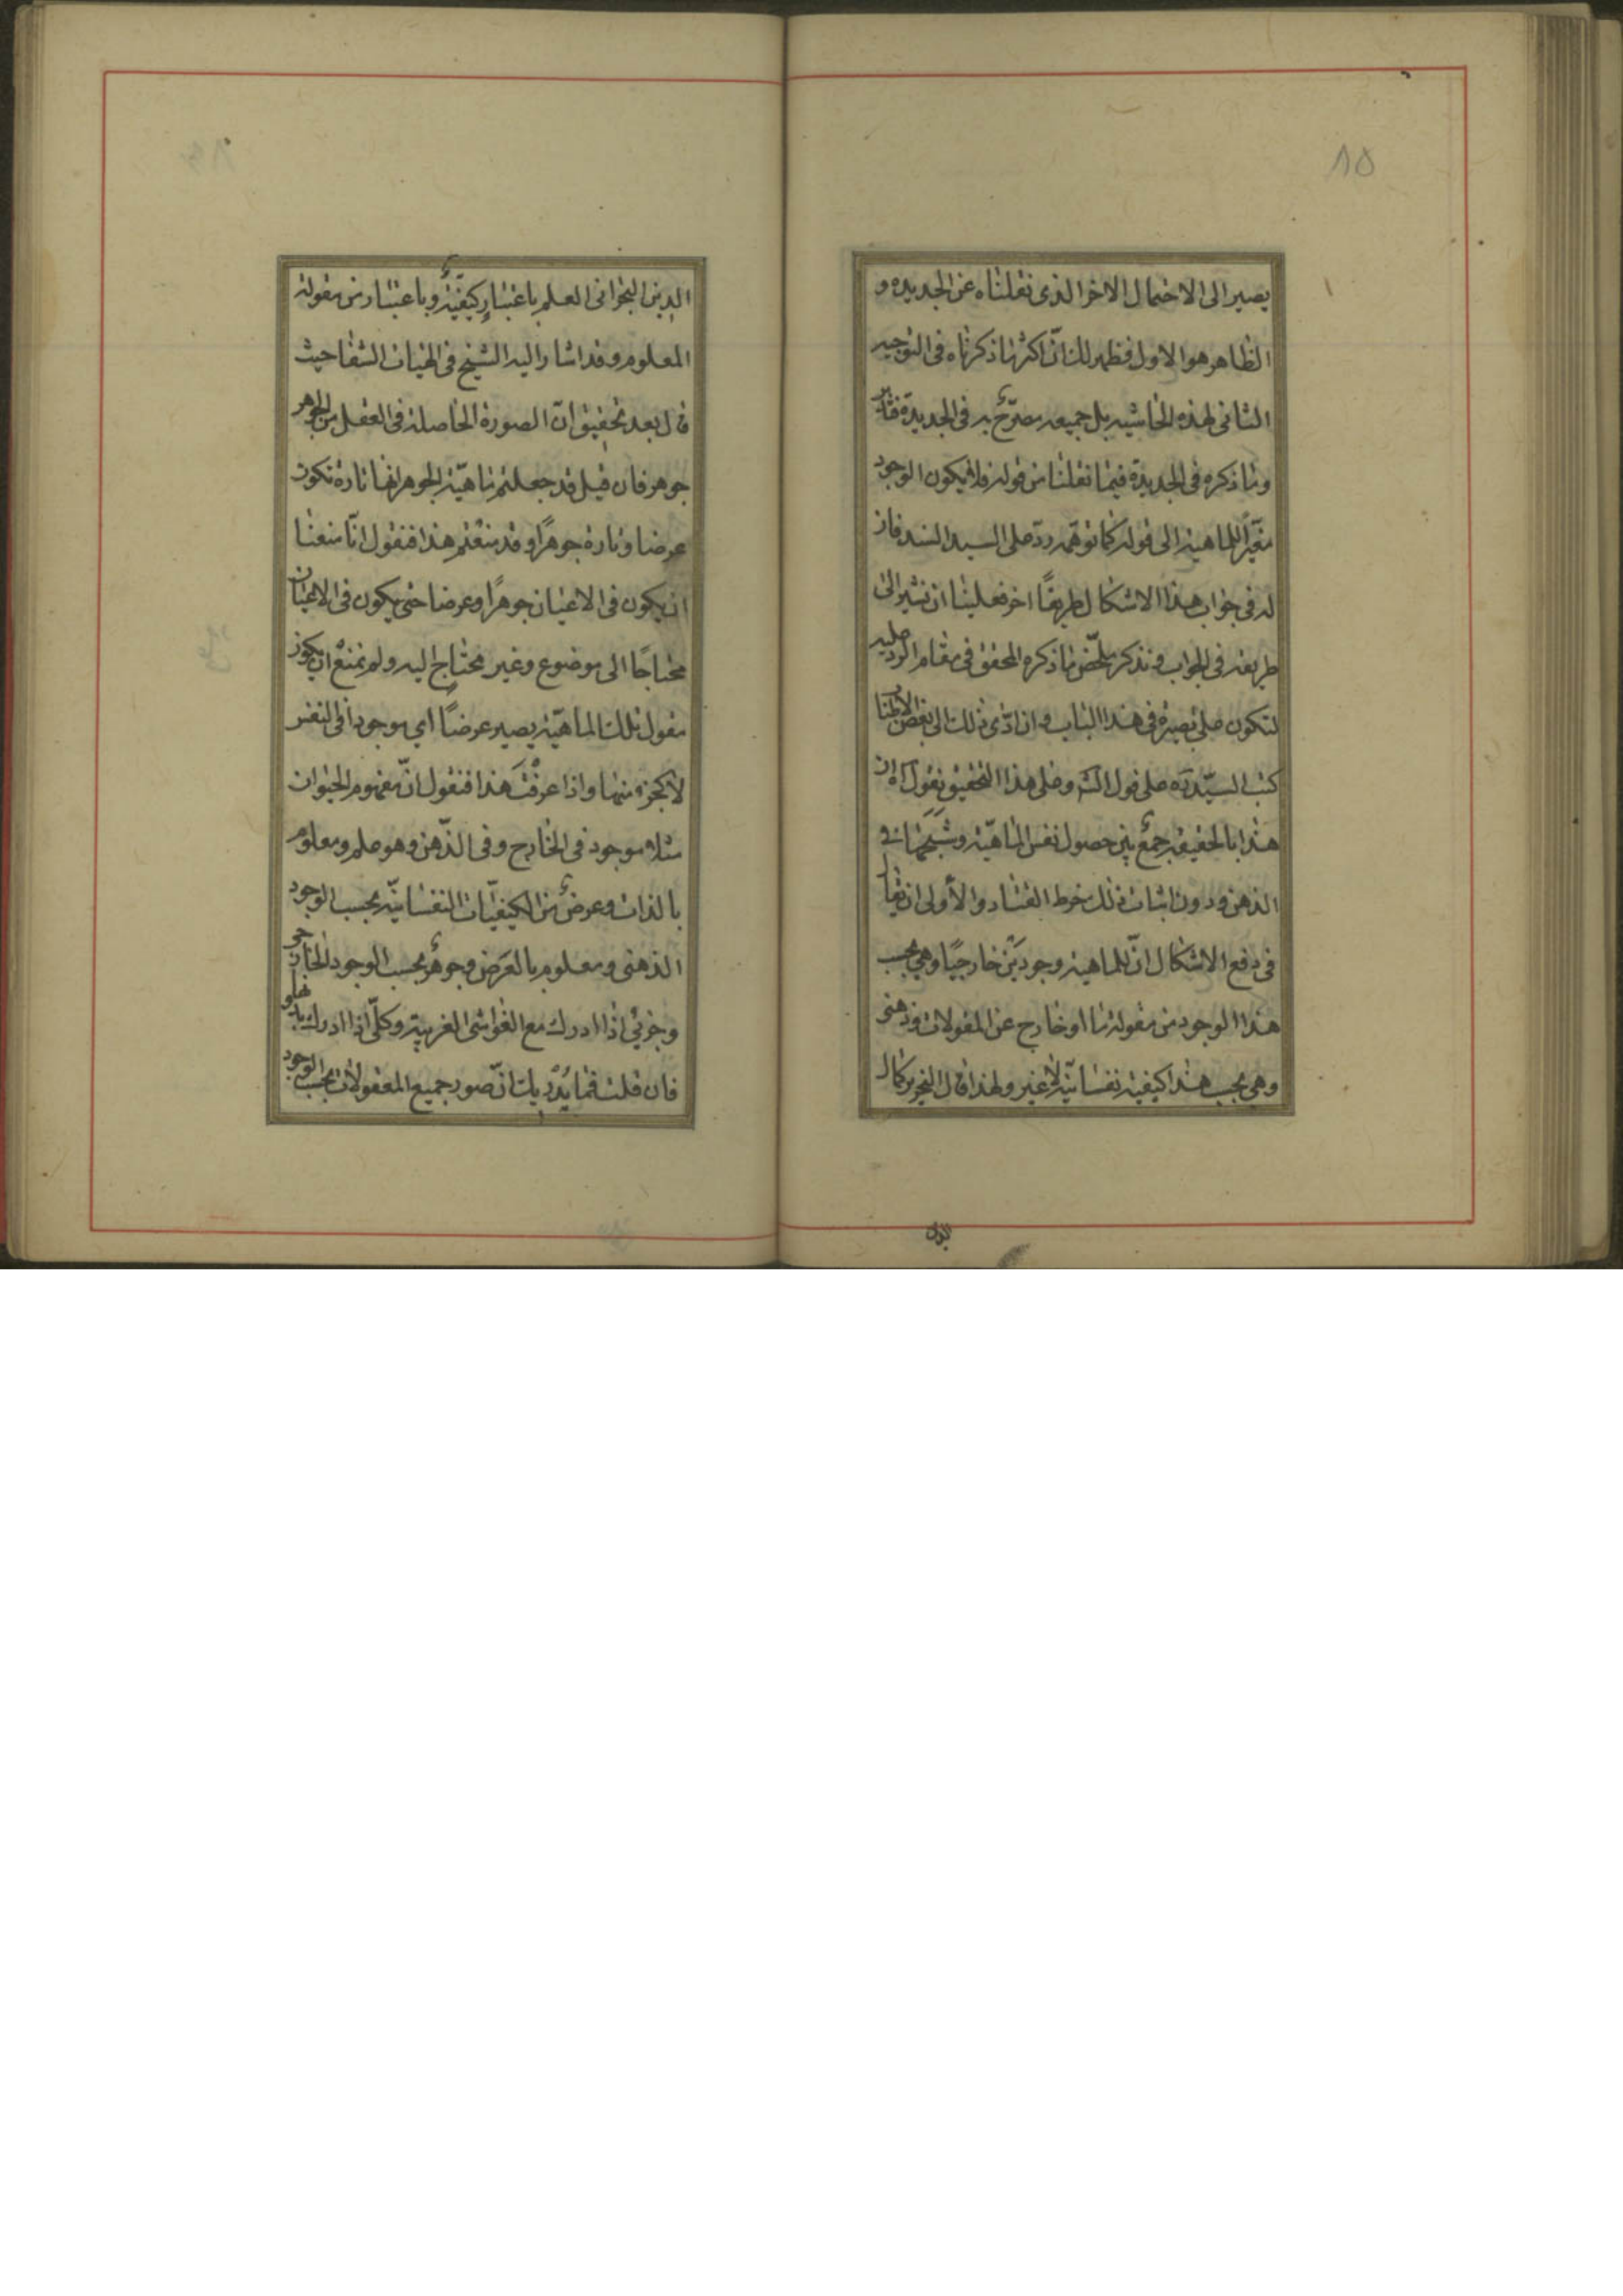 ٨٥
يصير الى الاحتمال الاخر الذى نقلناه عن الجديده و
الظاهر هو الاول فظهر لك انّ اكثر ما ذكرناه فى التوجيه
الثانى لهذه الحاشيه بل جميعه مصرّح به فى الجديدة فتأمّل
وما ذكره فى الجديدة فيما نقلنا من قوله فلا يكون الوجود
مغيّرًا للماهية الى قوله كما توهّم ردّ على السيد السند فان
له فى جواب هذا الاشكال طريقًا اخر فعلينا ان نشير الى
طريقه فى الجواب و نذكر ملخّص ما ذكره المحقق فى مقام الرد عليه
لتكون على بصيرة فى هذا الباب و ان ادّى ذلك الى بعض الاطنا
كتب السيّد ره على قول الش وعلى هذا التحقيق نقول آه ان
هذا بالحقيقه جمع بين حصول نفس الماهيّة وشبَحها فى
الذهن و دون اثبات ذلك خرط القتاد والأولى ان يقا
فى دفع الاشكال انّ للماهية وجودَين خارجيًا وهي بحسب
هذا الوجود من مقولة ما او خارج عن المقولات و ذهنى
وهى بحسب هذا كيفية نفسانيّة لا غير ولهذا قال النحرير كمال
الدين
الدين البحرانى العلم باعتبارٍ كيفيّة وباعتبار من مقولة
المعلوم وقد اشار اليه الشيخ فى الهيات الشفا حيث
قال بعد تحقيق انّ الصورة الحاصلة فى العقل من الجوهر
جوهر فان قيل قد جعلتم ماهيّة الجوهر انها تارة تكون
عرضا وتارة جوهرًا وقد منعتم هذا فنقول انّا منعنا
ان يكون فى الاعيان جوهرًا وعرضا حتى يكون فى الاعيان
محتاجًا الى موضوع وغير محتاج اليه ولم نمنع ان يكون
مقول تلك الماهيّة يصير عرضًا اي موجودا فى النفس
لا كجزء منها واذا عرفتَ هذا فنقول انّ مفهوم الحيوان
مثلا موجود فى الخارج وفى الذّهن وهو علم ومعلوم
بالذات وعرض من الكيفيّات النفسانيّة بحسب الوجود
الذهنى ومعلوم بالعَرَض وجوهر بحسب الوجود الخارجى
وجزئي اذا ادرك مع الغواشى الغريبة وكلّى اذا ادرك بذ
فان قلت فما يُدْريك انّ صور جميع المعقولات بحسب الوجود